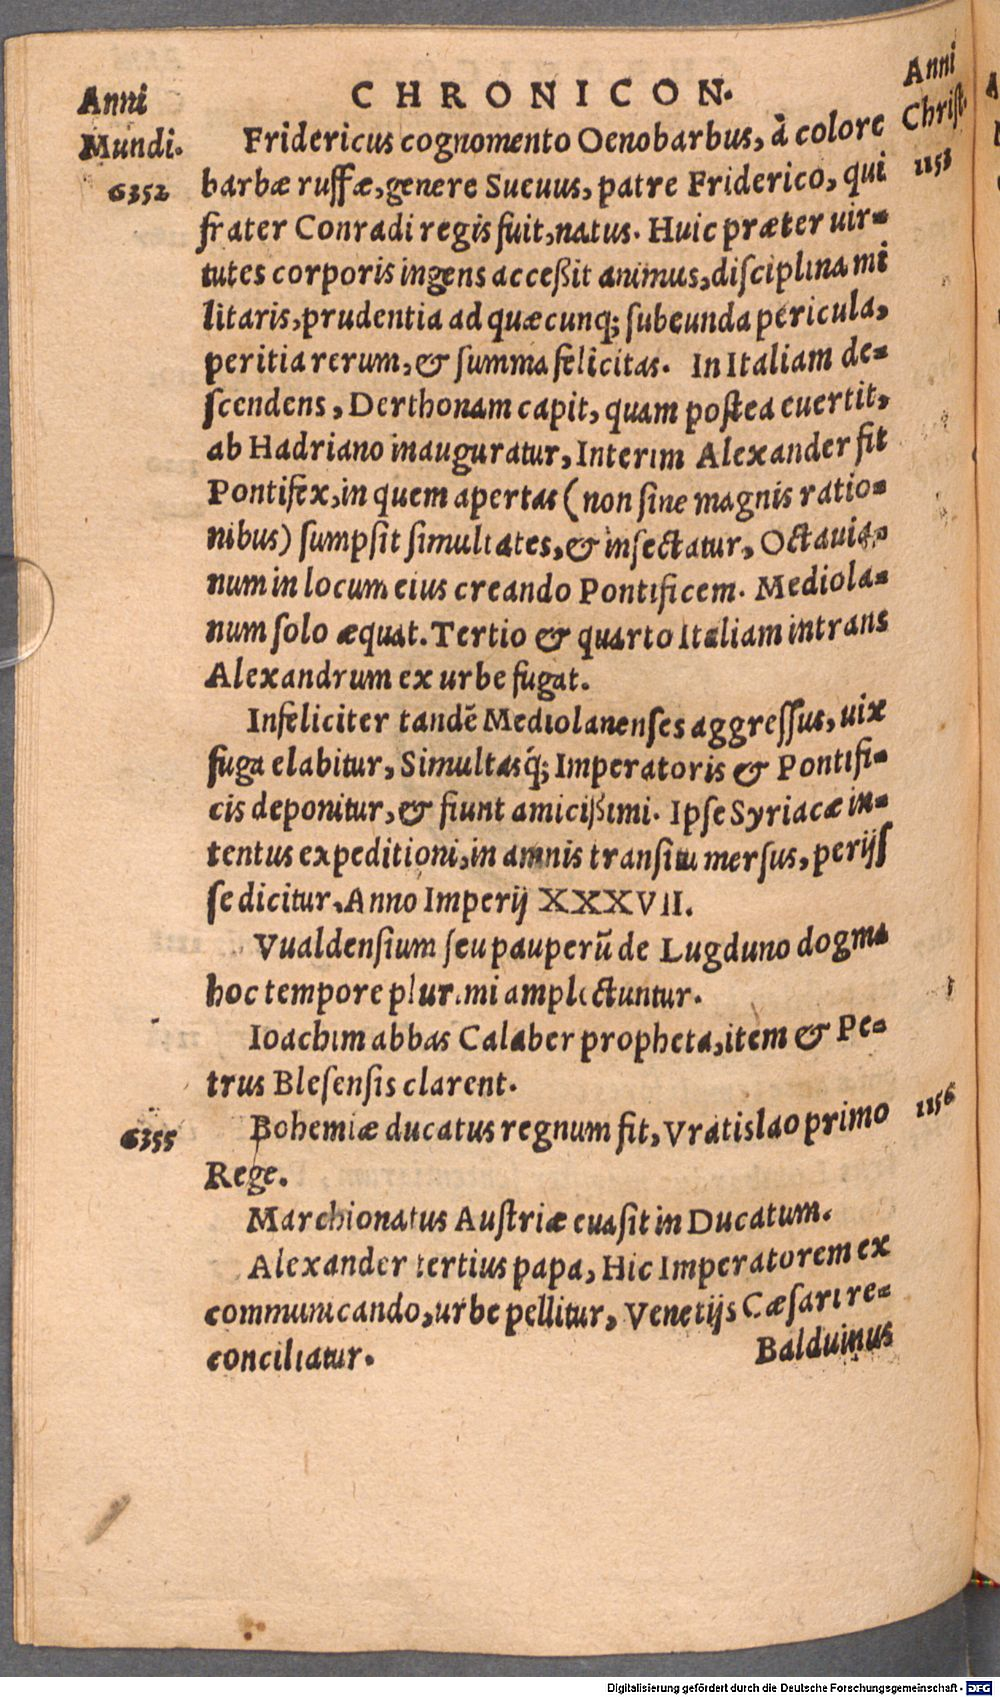 Anni
Mundi.
CHRONICON.
Anni
Christ.
6352
1153
Fridericus cognomento Oenobarbus, à colore
barbæ ruffæ, genere Sueuus, patre Friderico, qui
frater Conradi regis fuit, natus. Huic præter uir-
tutes corporis ingens acceßit animus, disciplina mi
litaris, prudentia ad quæcunq; subeunda pericula,
peritia rerum, & summa felicitas. In Italiam de-
scendens, Derthonam capit, quam postea euertit,
ab Hadriano inauguratur, Interim Alexander fit
Pontifex, in quem apertas (non sine magnis ratio-
nibus) sumpsit simultates, & insectatur, Octauia-
num in locum eius creando Pontificem. Mediola-
num solo æquat. Tertio & quarto Italiam intrans
Alexandrum ex urbe fugat.
Infeliciter tandē Mediolanenses aggressus, uix
fuga elabitur, Simultasq́; Imperatoris & Pontifi-
cis deponitur, & fiunt amicißimi. Ipse Syriacæ in-
tentus expeditioni, in amnis transitu mersus, perijs
se dicitur, Anno Imperij XXXVII.
Vualdensium seu pauperū de Lugduno dogma
hoc tempore plurimi amplectuntur.
Ioachim abbas Calaber propheta, item & Pe-
trus Blesensis clarent.
6355
1156
Bohemiæ ducatus regnum fit, Vratislao primo
Rege.
Marchionatus Austriæ euasit in Ducatum.
Alexander tertius papa, Hic Imperatorem ex
communicando, urbe pellitur, Venetijs Cæsari re-
conciliatur.
Balduinus
Digitalisierung gefördert durch die Deutsche Forschungsgemeinschaft - DFG